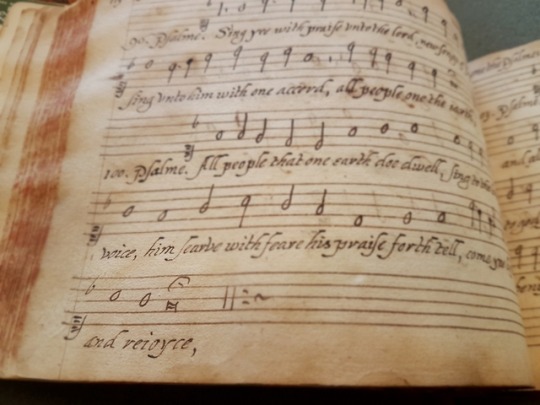 90. Psalme. Sing yee with praise vnto the lord, new
sing vnto him with one accord, all people one the earth,
100. Psalme. All people that one earth doe dwell, sing to
voice, him searve with feare his praise forth tell, come
and reioyce,